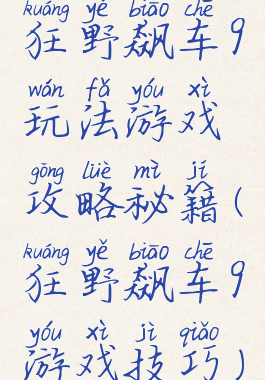 kuáng yě biāo chē
狂野飙车9
wán fǎ yóu xì
玩法游戏
gōng lüè mì jí
攻略秘籍(
kuáng yě biāo chē
狂野飙车9
yóu xì jì qiǎo
游戏技巧)